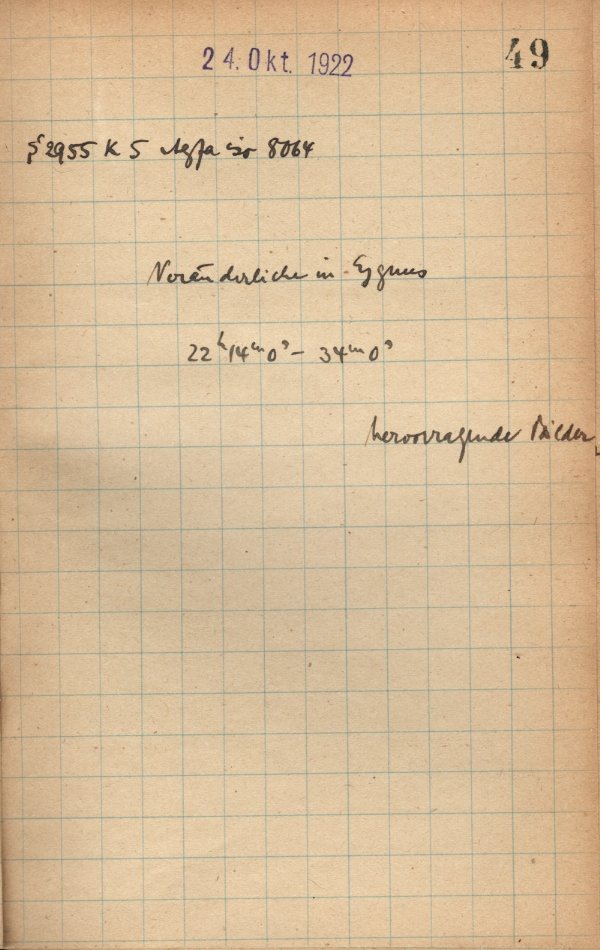 24. Okt. 1922
49
S 2955 K 5 Agfa iso 8064
Veränderliche in Cygnus
22ʰ14ᵐ0ˢ – 34ᵐ0ˢ
hervorragende Bilder